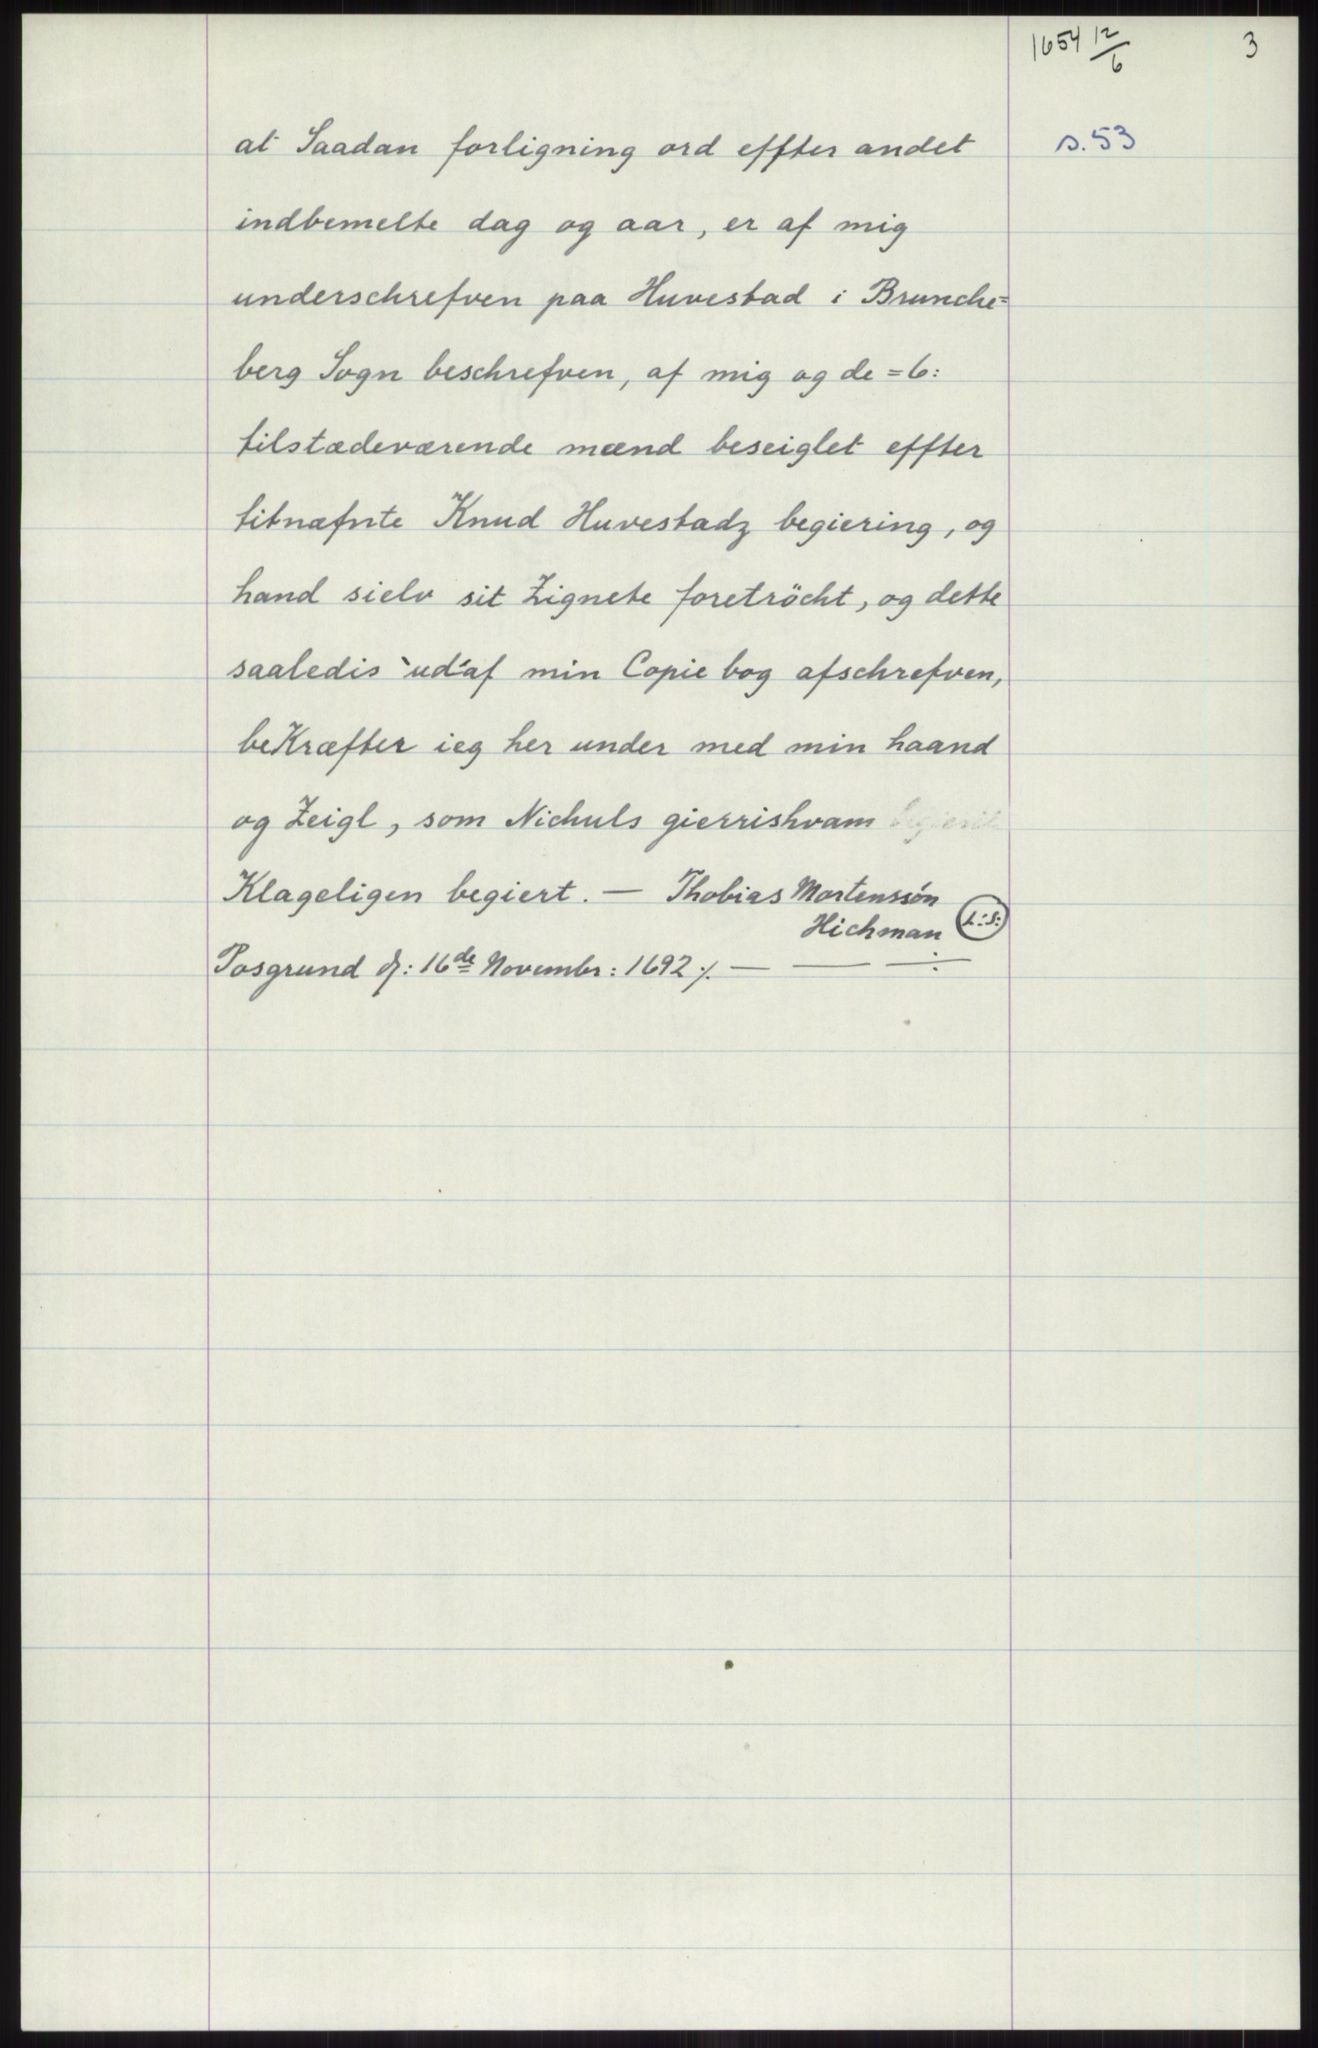 1654 12/6 3
s. 53
at Saadan forligning ord effter andet
indbemelte dag og aar, er af mig
underschrefven paa Huvestad i Brunche=
berg Sogn beschrefven, af mig og de =6:
tilstædeværende mænd beseiglet effter
titnæfnte Knud Huvestadz begiering, og
hand sielv sit Zignete foretröcht, og dette
saaledis ud af min Copie bog afschrefven,
beKræfter ieg her under med min haand
og Zeigl, som Nichuls gierrishvam
Klageligen begiert. — Thobias Mortenssón
Hichman L:S:
Posgrund d: 16de Novembr: 1692 ./. — — ÷